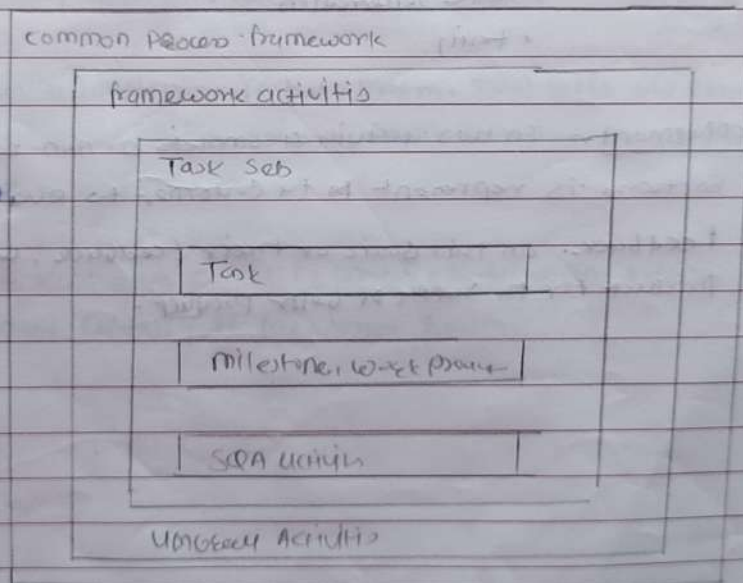 common process framework
framework activitis
Task Sets
Task
milestone, work product
SQA activitis
Umbrella Activitis